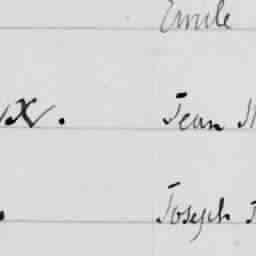 Emile
X. Jean
Joseph